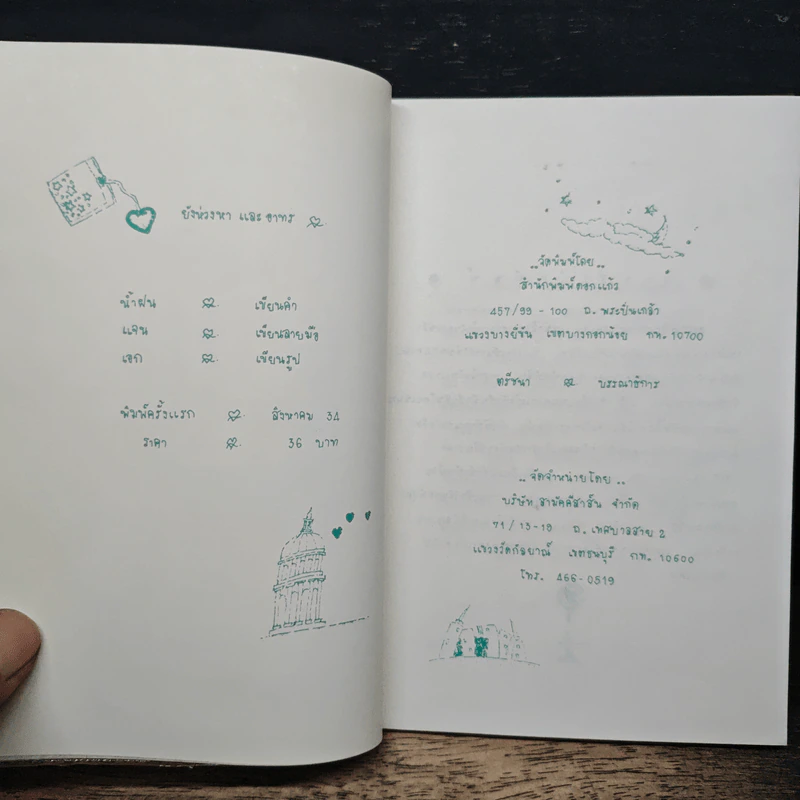 ยังห่วงหา และ อาทร
น้ำฝน เขียนคำ
แจน เขียนลายมือ
เอก เขียนรูป
พิมพ์ครั้งแรก สิงหาคม 34
ราคา 36 บาท
..จัดพิมพ์โดย..
สำนักพิมพ์ดอกแก้ว
457/99 - 100 ถ. พระปิ่นเกล้า
แขวงบางยี่ขัน เขตบางกอกน้อย กท. 10700
ตรัชนา บรรณาธิการ
.. จัดจำหน่ายโดย ..
บริษัท สามัคคีสาส์น จำกัด
71/13-18 ถ. เทศบาลสาย 2
แขวงวัดกัลยาณ์ เขตธนบุรี กท. 10600
โทร. 466-0519